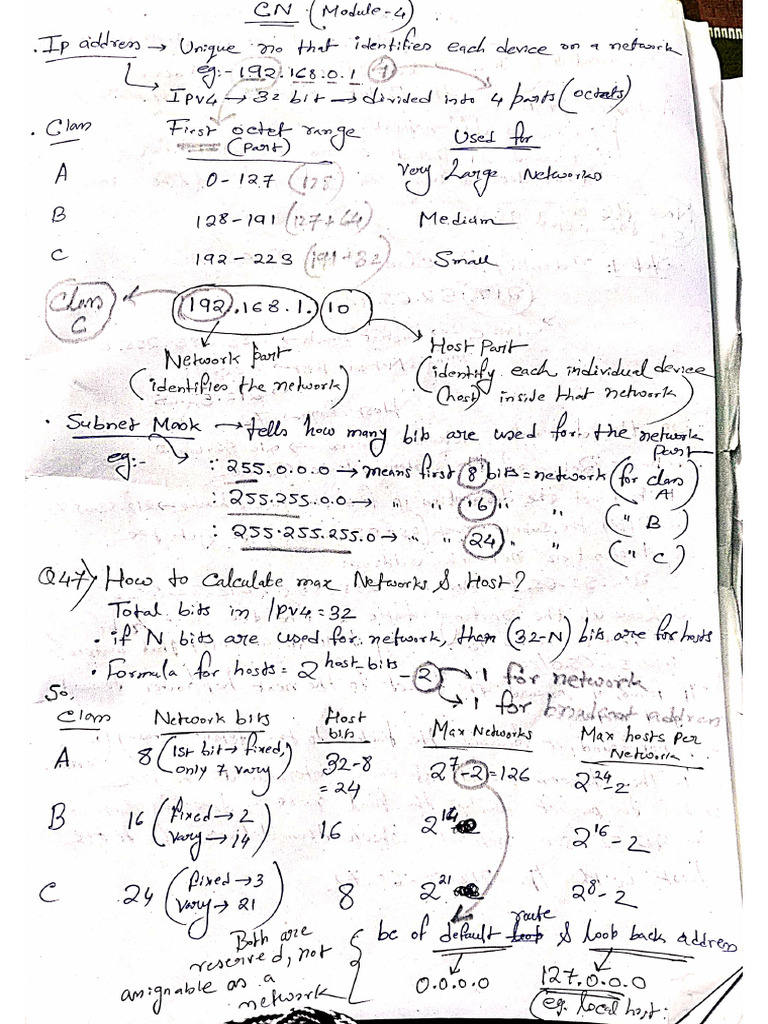 CN (Module-4)
. Ip address → Unique no that identifies each device on a network
eg:- 192.168.0.1
IPV4 → 32 bit → divided into 4 parts (octets)
. Class First octet range (part) Used for
A 0-127 (128) Very Large Networks
B 128-191 (127+64) Medium
C 192-223 (191+32) Small
Class C ← 192.168.1. 10
Network part Host Part
(identifies the network) (identify each individual device (host) inside that network)
. Subnet Mask → tells how many bits are used for the network part
eg:- : 255.0.0.0 → means first 8 bits = network (for class A)
: 255.255.0.0 → " " 16 " " (" B)
: 255.255.255.0 → " " 24 " " (" C)
Q47) How to calculate max Networks & Host?
Total bits in IPV4 = 32
. if N bits are used for network, then (32-N) bits are for hosts
. Formula for hosts = 2^host bits - 2 → 1 for network
→ 1 for broadcast address
So,
Class Network bits Host bits Max Networks Max hosts per Network
A 8 (1st bit → fixed, only 7 vary) 32-8 = 24 2^7 - 2 = 126 2^24 - 2
B 16 (fixed → 2 vary → 14) 16 2^14 2^16 - 2
C 24 (fixed → 3 vary → 21) 8 2^21 2^8 - 2
bc of default route & loop back address
Both are reserved, not assignable as a network
0.0.0.0 127.0.0.0
(eg. local host.